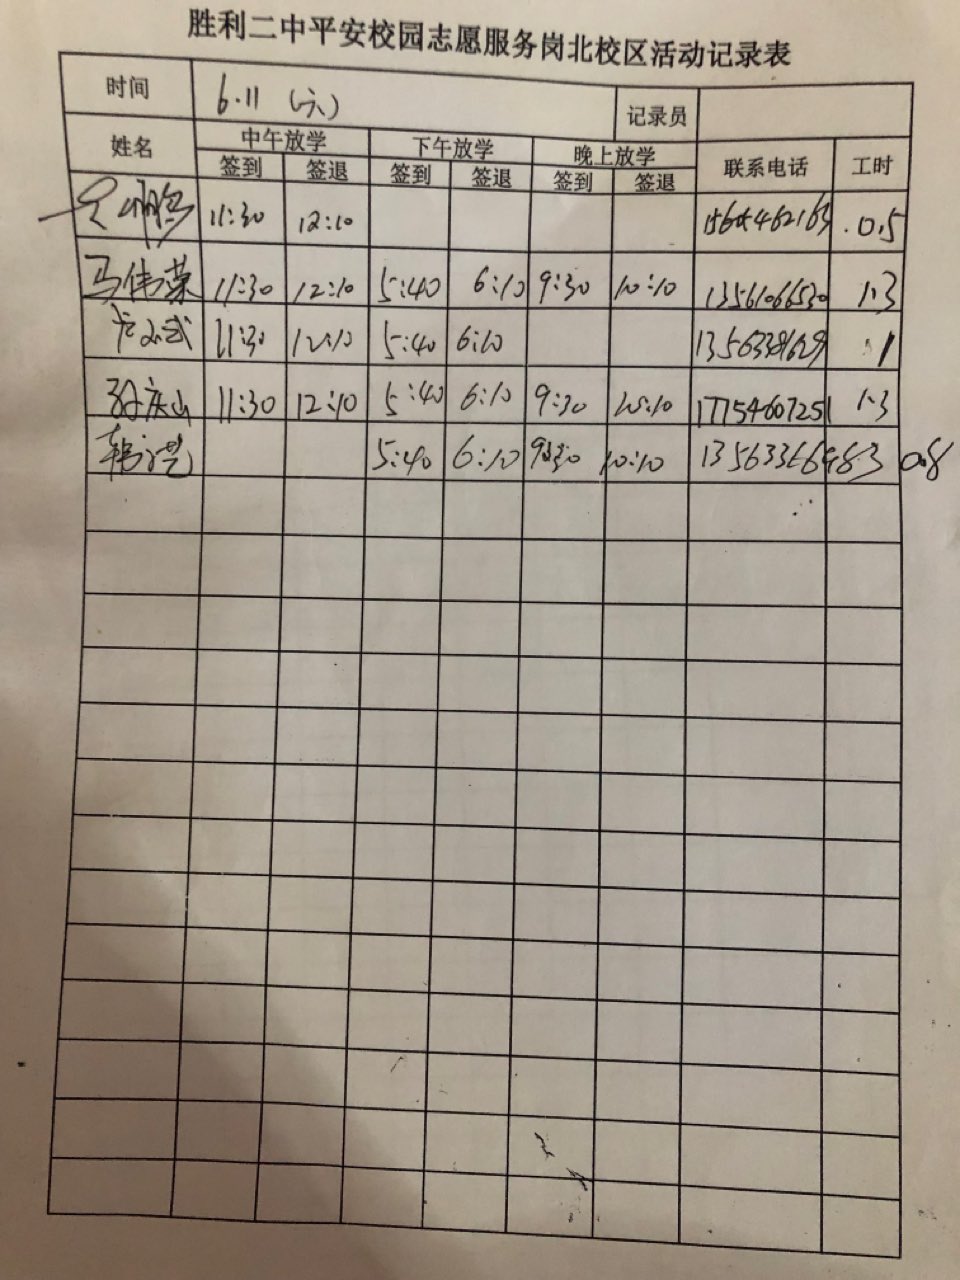 胜利二中平安校园志愿服务岗北校区活动记录表
时间 6.11 (六) 记录员
姓名 中午放学 下午放学 晚上放学 联系电话 工时
签到 签退 签到 签退 签到 签退
11:30 12:10 0.5
马伟荣 11:30 12:10 5:40 6:10 9:30 10:10 13561066530 1.3
11:30 12:10 5:40 6:10 1
孙庆山 11:30 12:10 5:40 6:10 9:30 10:10 17754607251 1.3
5:40 6:10 9:30 10:10 0.8